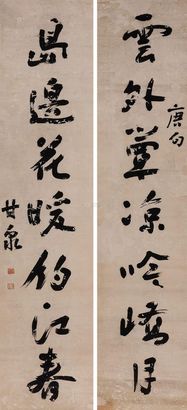 唐句
雲外簟凉吟嶠月
島邊花暖釣江春
甘泉